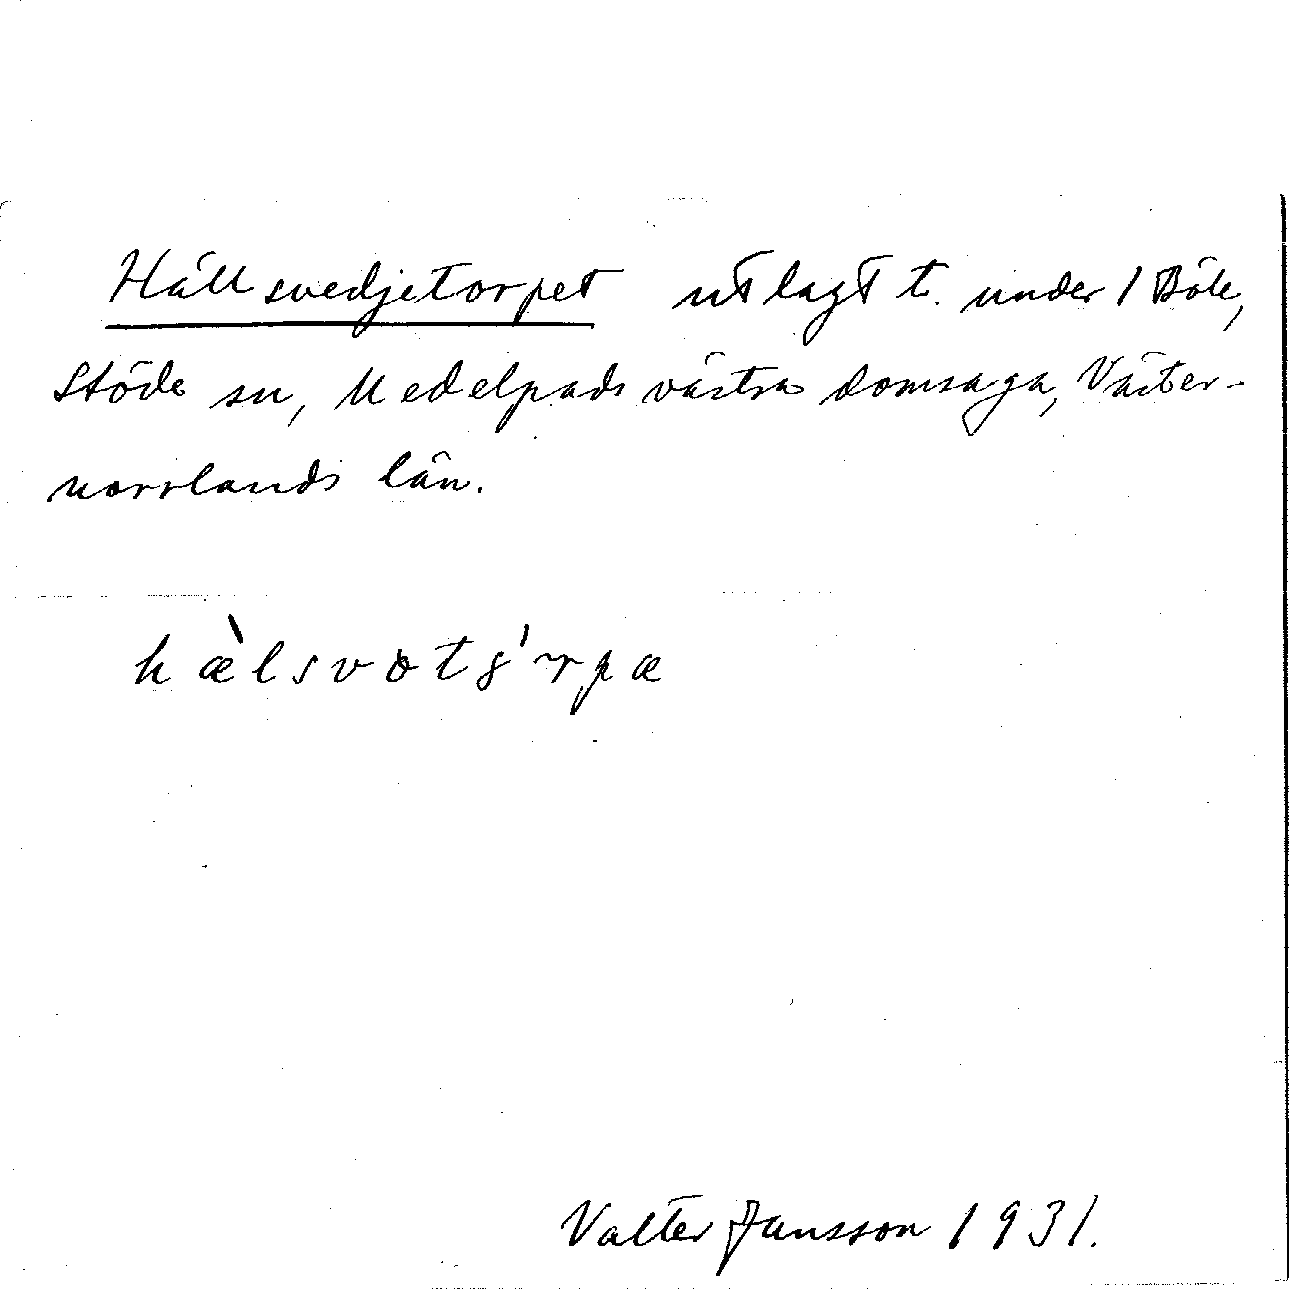 Hällsvedjetorpet utlagt t. under 1 Böle,
Stöde sn, Medelpads västra domsaga, Väster-
norrlands län.
Valter Jansson 1931.